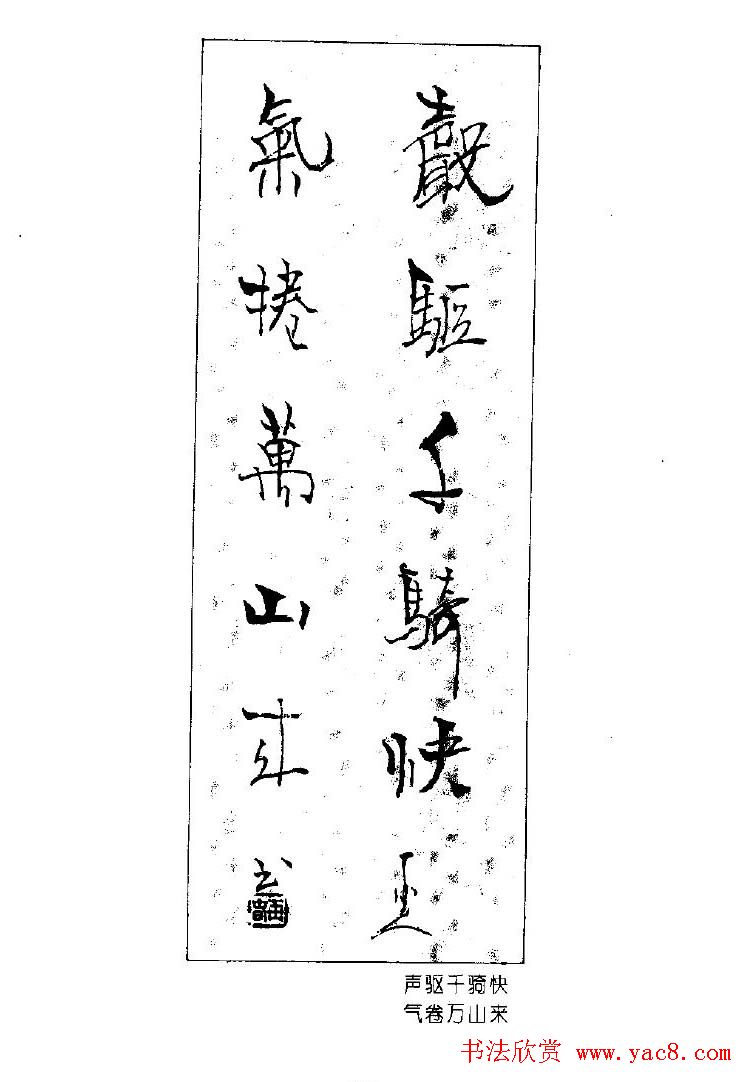 聲驅千騎快
氣捲萬山来
书
声驱千骑快
气卷万山来
书法欣赏 www.yac8.com